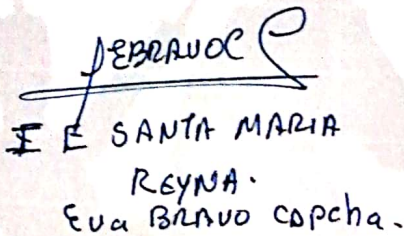 EBRAVOC
I E SANTA MARIA
REYNA.
Eva BRAVO CAPcha.